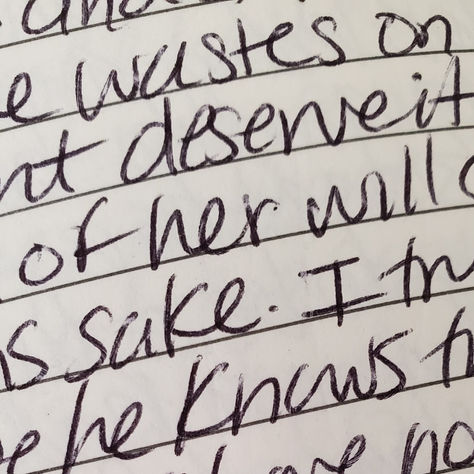 and
e wastes on
nt deserve it
of her will
s sake. I
e he knows
no